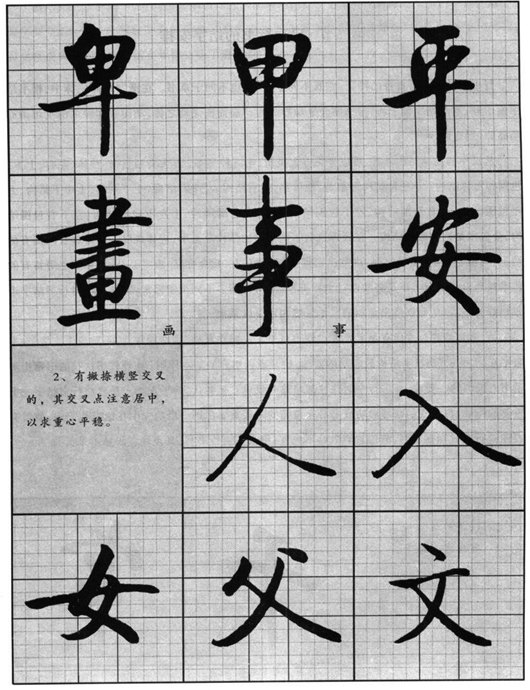 卑 甲 平
畫 事 安
画 事
2、有撇捺横竖交叉
的，其交叉点注意居中，
以求重心平稳。
人 入
女 父 文